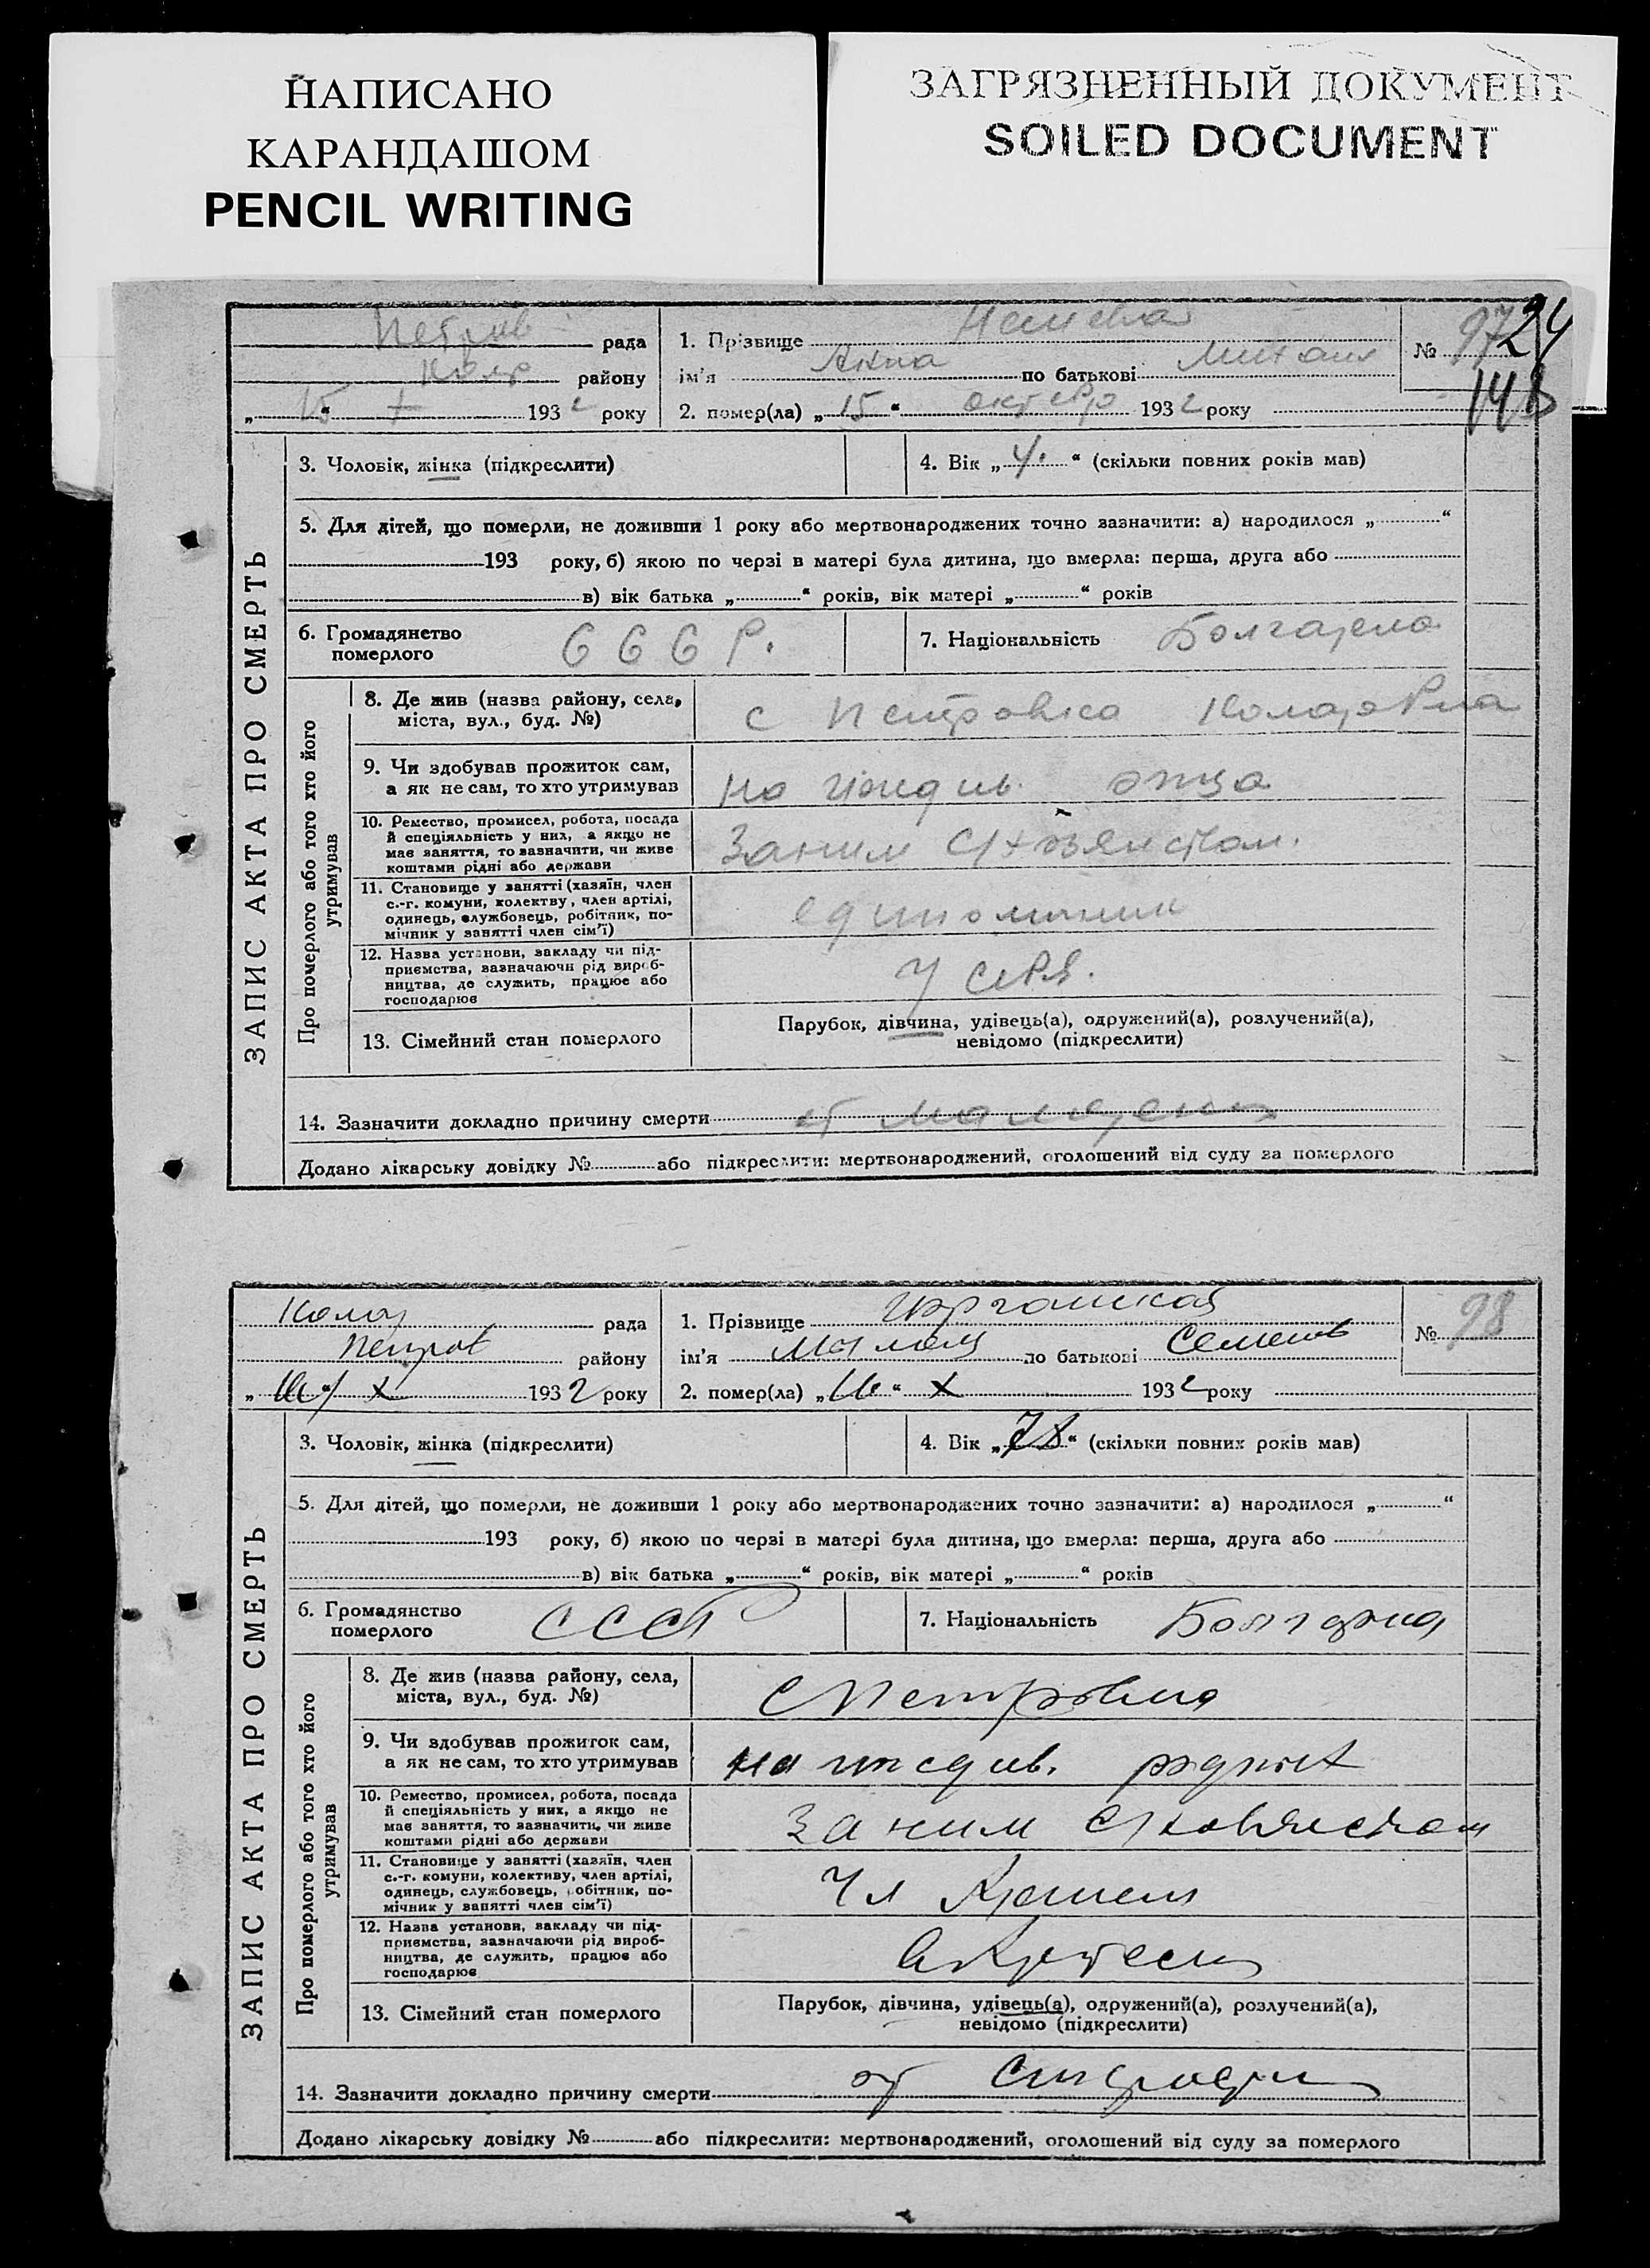 НАПИСАНО
КАРАНДАШОМ
PENCIL WRITING
ЗАГРЯЗНЕННЫЙ ДОКУМЕНТ
SOILED DOCUMENT
ЗАПИС АКТА ПРО СМЕРТЬ
Петров рада
району
„15“ X 1932 року
1. Прізвище
ім'я Анна по батькові Михаил
2. помер(ла) „15“ октября 1932 року
№ 97
24
148
3. Чоловік, жінка (підкреслити)
4. Вік „4.“ (скільки повних років мав)
5. Для дітей, що померли, не доживши 1 року або мертвонароджених точно зазначити: а) народилося „ “
193 року, б) якою по черзі в матері була дитина, що вмерла: перша, друга або
в) вік батька „ “ років, вік матері „ “ років
6. Громадянство
померлого
СССР.
7. Національність
Болгарка
Про померлого або того хто його
утримував
8. Де жив (назва району, села,
міста, вул., буд. №)
с Петровка
9. Чи здобував прожиток сам,
а як не сам, то хто утримував
на иждив. отца
10. Ремество, промисел, робота, посада
й спеціяльність у них, а якщо не
має заняття, то зазначити, чи живе
коштами рідні або держави
Заним
11. Становище у занятті (хазяїн, член
с.-г. комуни, колектву, член артілі,
одинець, службовець, робітник, по-
мічник у занятті член сім'ї)
единоличник
12. Назва установи, закладу чи під-
приємства, зазначаючи рід вироб-
ництва, де служить, працює або
господарює
У себя.
13. Сімейний стан померлого
Парубок, дівчина, удівець(а), одружений(а), розлучений(а),
невідомо (підкреслити)
14. Зазначити докладно причину смерти от
Додано лікарську довідку № або підкреслити: мертвонароджений, оголошений від суду за померлого
ЗАПИС АКТА ПРО СМЕРТЬ
Колар рада
Петров району
1932 року
1. Прізвище
ім'я по батькові Семенов
2. помер(ла) X 1932 року
№ 98
3. Чоловік, жінка (підкреслити)
4. Вік „78“ (скільки повних років мав)
5. Для дітей, що померли, не доживши 1 року або мертвонароджених точно зазначити: а) народилося „ “
193 року, б) якою по черзі в матері була дитина, що вмерла: перша, друга або
в) вік батька „ “ років, вік матері „ “ років
6. Громадянство
померлого
СССР
7. Національність
Болгарка
Про померлого або того хто його
утримував
8. Де жив (назва району, села,
міста, вул., буд. №)
с Петровка
9. Чи здобував прожиток сам,
а як не сам, то хто утримував
на иждив. родных
10. Ремество, промисел, робота, посада
й спеціяльність у них, а якщо не
має заняття, то зазначити, чи живе
коштами рідні або держави
Заним
11. Становище у занятті (хазяїн, член
с.-г. комуни, колективу, член артілі,
одинець, службовець, робітник, по-
мічник у занятті член сім'ї)
Чл Артели
12. Назва установи, закладу чи під-
приємства, зазначаючи рід вироб-
ництва, де служить, працює або
господарює
в Артели
13. Сімейний стан померлого
Парубок, дівчина, удівець(а), одружений(а), розлучений(а),
невідомо (підкреслити)
14. Зазначити докладно причину смерти от
Додано лікарську довідку № або підкреслити: мертвонароджений, оголошений від суду за померлого